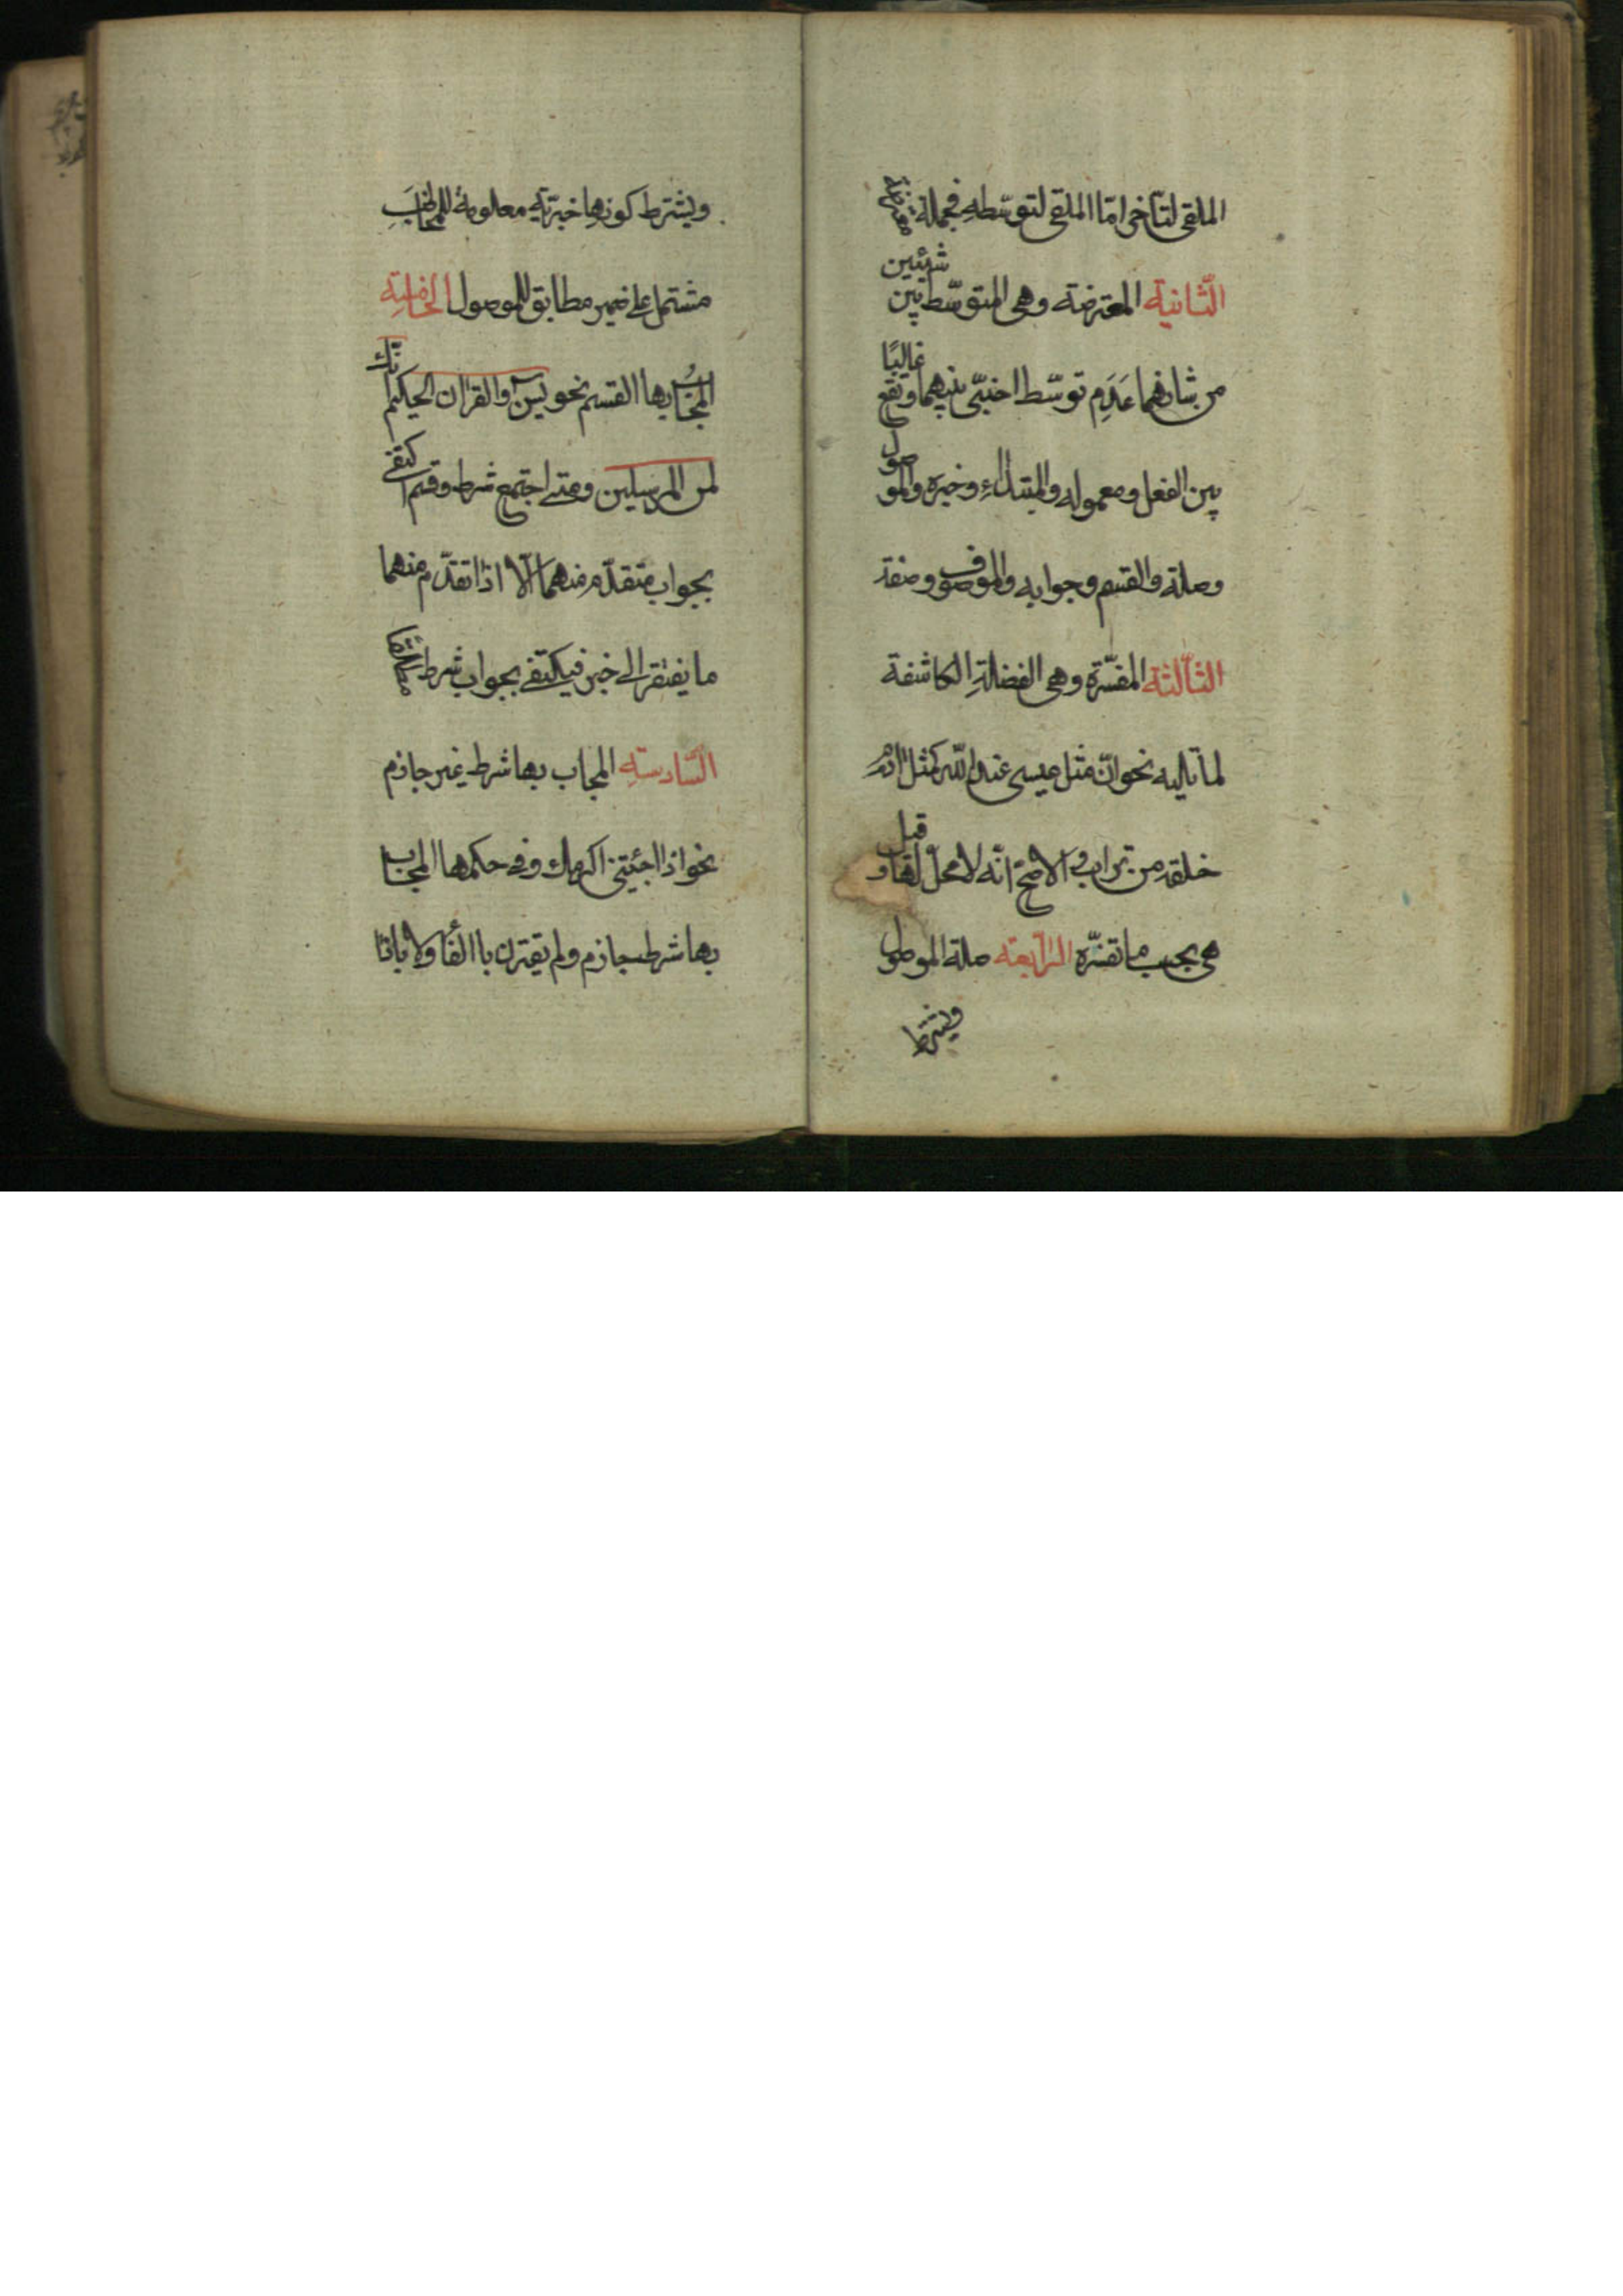 الملقى لتاخر امّا الملقى لتوسّطه فجملة
الثّانية المعترضة وهى المتوسّطة بين شيئين
من شانهما عَدَم توسّط اجنبّى بينهما وتقع غالبًا
بين الفعل ومعموله والمبتداءِ وخبره والموصول
وصلته والقسم وجوابه والموصوف وصفته
الثّالثة المفسّرة وهى الفضلةِ الكاشفة
لما تليه نحو انّ مثل عيسى عند اللّه كمثل ادم
خلقه من تراب و الاصحّ انّه لا محلّ لها و قيل
هى بحسب ما تفسّره الرّابعة صلة الموصول
ويشترط
ويشترط كونها خبرّية معلومة للمخاطب
مشتمل على ضمير مطابق للموصول الخامسة
المجاب بها القسم نحو يس والقران الحكيم انّك
لمن المرسلين ومتى اجتمع شرط وقسم اكتفى
بجواب متقدّم منهما الّا اذا تقدّم منهما
ما يفتقر الى خبر فيكتفى بجواب شرط
السّادسة المجاب بها شرط غير جازم
نحو اذا جئتنى اكرمك وفى حكمها المجاب
بها شرط جازم ولم يقترن باالفا ولا باذا